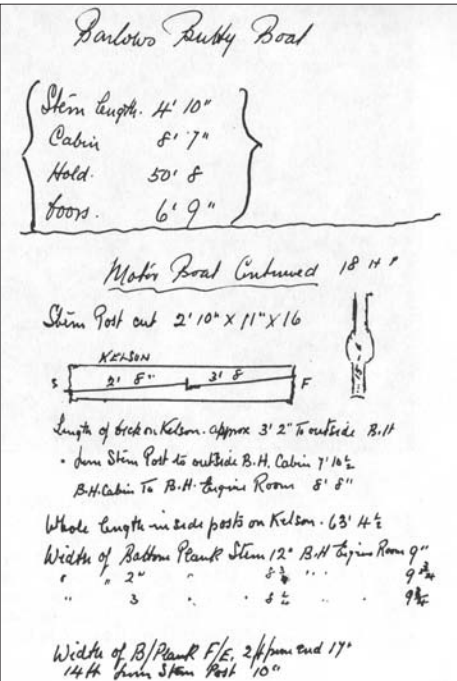 Barlows Butty Boat
Stern length. 4' 10"
Cabin 8' 7"
Hold. 50' 8
foors. 6' 9"
Motor Boat Continued 18 H P
Stern Post cut 2' 10" X 11" X 16
KELSON
S 2' 8" 3' 8 F
Length of on Kelson. approx 3' 2" To outside B.H
" from Stern Post to outside B.H. Cabin 7' 10½
B.H. Cabin To B.H. Engine Room 8' 8"
Whole length inside posts on Kelson. 63' 4½
Width of Bottom Plank Stern 12" B.H Engine Room 9"
" " 2" " 8¾ " " 9¾
" 3 " 8½ " 9¾
Width of B/Plank F/E, 2/ft from end 17"
14 ft from Stern Post 10"